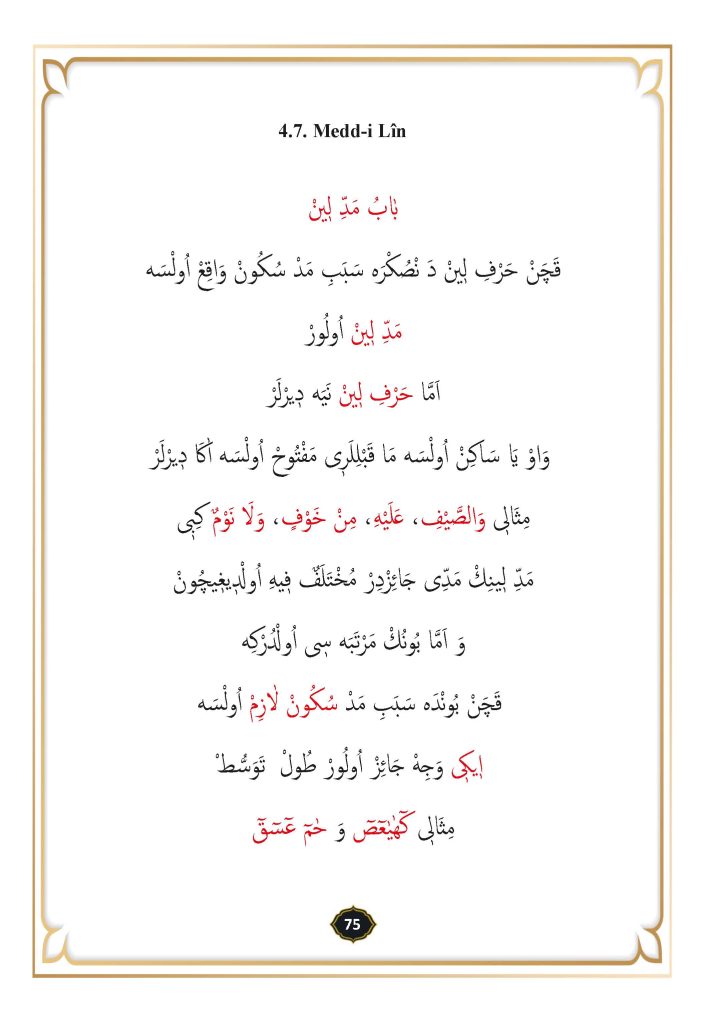 4.7. Medd-i Lîn
بَابُ مَدِّ لٖينْ
قَچَنْ حَرْفِ لٖينْ دَ نْصُكْرَه سَبَبِ مَدْ سُكُونْ وَاقِعْ اُولْسَه
مَدِّ لٖينْ اُولُورْ
اَمَّا حَرْفِ لٖينْ نَيَه دٖيرْلَرْ
وَاوْ يَا سَاكِنْ اُولْسَه مَا قَبْلِلَرٖى مَفْتُوحْ اُولْسَه اَكَا دٖيرْلَرْ
مِثَالٖى وَالصَّيْفِ، عَلَيْهِ، مِنْ خَوْفٍ، وَلَا نَوْمٌ كِبٖى
مَدِّ لٖينِكْ مَدِّى جَائِزْدِرْ مُخْتَلَفٌ فٖيهِ اُولْدٖيغٖيچُونْ
وَ اَمَّا بُونُكْ مَرْتَبَه سٖى اُولْدُرْكِه
قَچَنْ بُونْدَه سَبَبِ مَدْ سُكُونْ لَازِمْ اُولْسَه
اٖيكٖى وَجِهْ جَائِزْ اُولُورْ طُولْ تَوَسُّطْ
مِثَالٖى كٓهٰيٰعٓصٓ وَ حٰمٓ عٓسٓقٓ
75